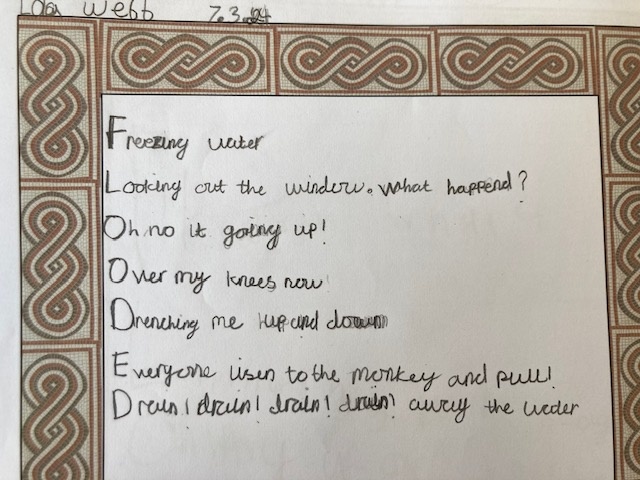 Webb 7.3.24
Freezing water
Looking out the window. What happend?
Oh no it going up!
Over my knees now
Drenching me up and down
Everyone lisen to the monkey and pull!
Drain! drain! drain! drain! away the water